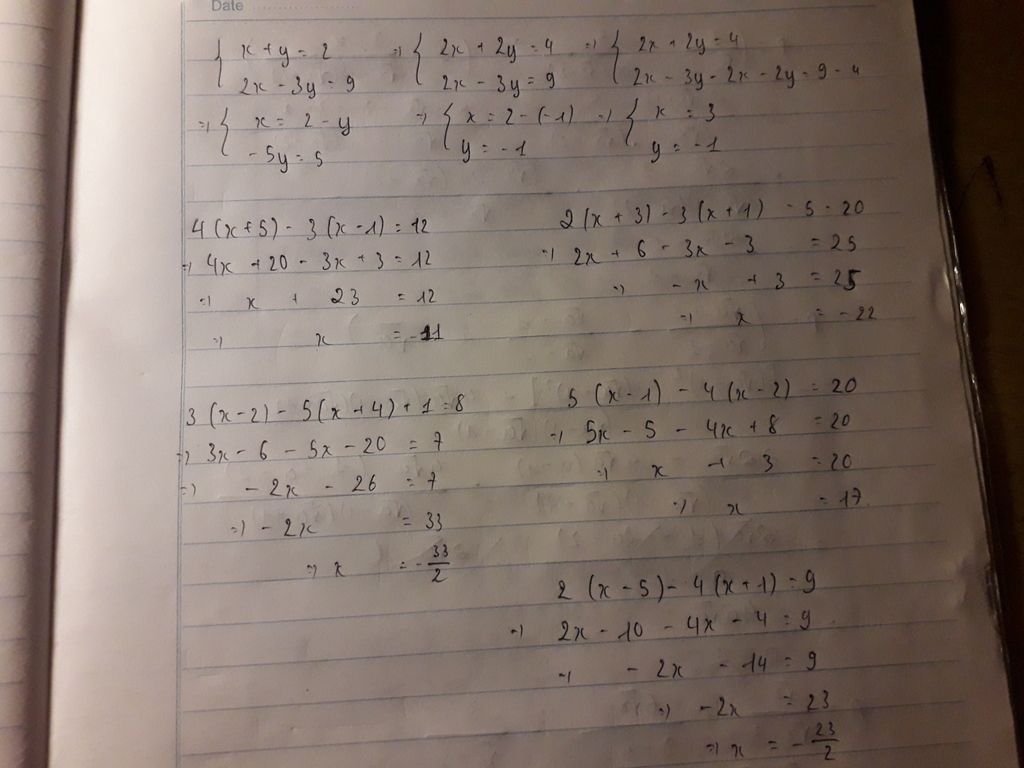 Date
{ x + y = 2 => { 2x + 2y = 4 => { 2x + 2y = 4
2x - 3y = 9 2x - 3y = 9 2x - 3y - 2x - 2y = 9 - 4
=> { x = 2 - y => { x = 2 - (-1) => { x = 3
-5y = 5 y = -1 y = -1
4(x+5) - 3(x-1) = 12
=> 4x + 20 - 3x + 3 = 12
=> x + 23 = 12
=> x = -11
2(x + 3) - 3(x + 1) - 5 = 20
=> 2x + 6 - 3x - 3 = 25
=> -x + 3 = 25
=> x = -22
3(x-2) - 5(x+4) + 1 = 8
=> 3x - 6 - 5x - 20 = 7
=> -2x - 26 = 7
=> -2x = 33
=> x = -33/2
5(x-1) - 4(x-2) = 20
=> 5x - 5 - 4x + 8 = 20
=> x + 3 = 20
=> x = 17
2(x-5) - 4(x+1) = 9
=> 2x - 10 - 4x - 4 = 9
=> -2x - 14 = 9
=> -2x = 23
=> x = -23/2